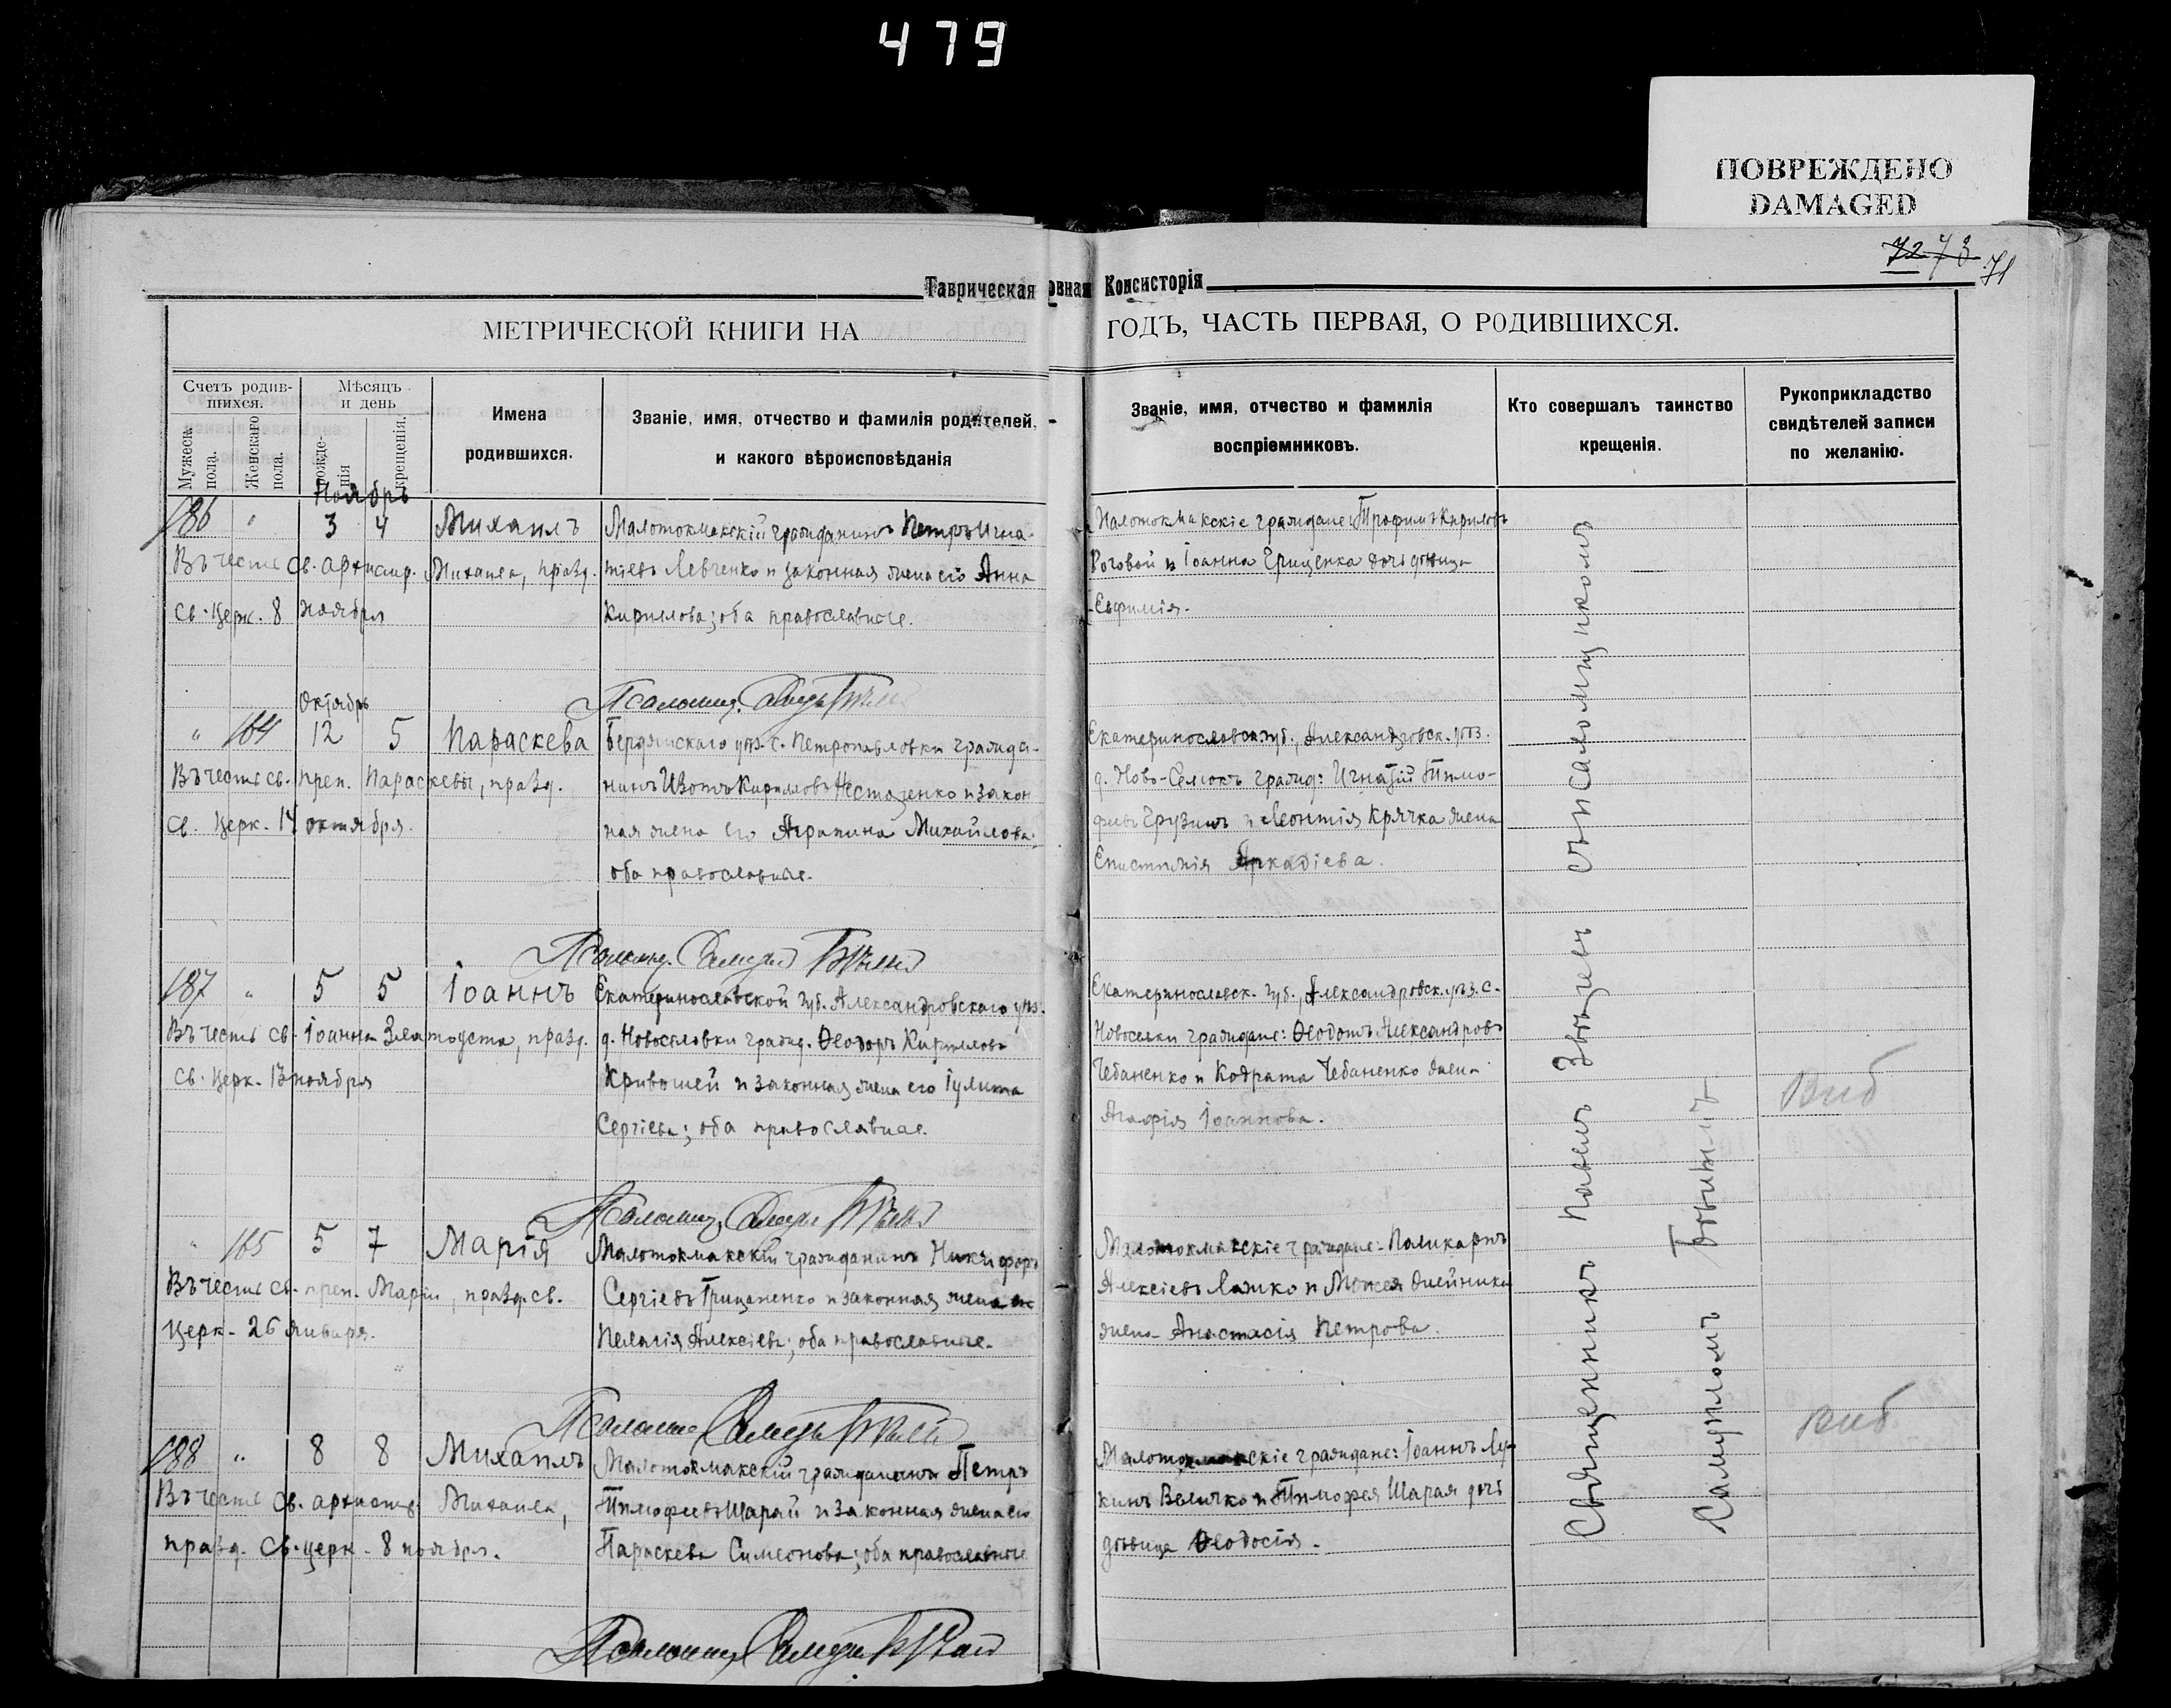 479
ПОВРЕЖДЕНО
DAMAGED
72 73 71
Таврическая овная Консисторія
МЕТРИЧЕСКОЙ КНИГИ НА ГОДЪ, ЧАСТЬ ПЕРВАЯ, О РОДИВШИХСЯ.
Счетъ родив-
шихся.
Мужеск.
пола.
Женскаго
пола.
Мѣсяцъ
и день
рожде-
нія
крещенія.
Имена
родившихся.
Званіе, имя, отчество и фамилія родителей,
и какого вѣроисповѣданія
Званіе, имя, отчество и фамилія
воспріемниковъ.
Кто совершалъ таинство
крещенія.
Рукоприкладство
свидѣтелей записи
по желанію.
Ноябрь
186 " 3 4 Михаилъ
Въ честь св. архистр. Михаила, празд.
св. церк. 8 ноября
Малотокмакскій гражданинъ Петръ Игна-
тіевъ Левченко и законная жена его Анна
Кириллова; оба православные.
Малотокмакскіе граждане: Трофимъ Кириловъ
Роговой и Іоанна Грищенка дочь дѣвица
Евфимія.
Псаломщ.
Октябрь
" 164 12 5 Параскева
Въ честь св. преп. Параскевы, празд.
св. церк. 14 октября.
Бердянскаго уѣз. с. Петропавловки гражда-
нинъ Изотъ Кирилловъ Нестазенко и закон
ная жена его Агрипина Михайлова;
оба православные.
Екатеринославск. губ., Александровск. уѣз.
д. Ново-Селокъ гражд: Игнатій Тимо-
фіевъ Грузинъ и Леонтія Крячка жена
Епистимія Аркадіева.
Псаломщ.
187 " 5 5 Іоаннъ
Въ честь св. Іоанна Златоуста, празд.
св. церк. 13 ноября
Екатеринославской губ. Александровскаго уѣз.
д. Новоселовки гражд. Ѳеодоръ Кирилловъ
Кривошей и законная жена его Іулита
Сергіева; оба православные.
Екатеринославск. губ., Александровск. уѣз. с.
Новоселки граждане: Ѳеодотъ Александровъ
Чебаненко и Кодрата Чебаненко жена
Агафія Іоаннова.
Псаломщ.
" 165 5 7 Марія
Въ честь св. преп. Маріи, празд. св.
церк. 26 января.
Малотокмакскій гражданинъ Никифоръ
Сергіевъ Грицаненко и законная жена его
Пелагія Алексіева; оба православные.
Малотокмакскіе граждане: Поликарпъ
Алексіевъ Ляшко и Моисея Олейника
жена Анастасія Петрова.
188 " 8 8 Михаилъ
Въ честь св. архистр. Михаила,
празд. св. церк. 8 ноября.
Малотокмакскій гражданинъ Петръ
Тимофеевъ Шарай и законная жена его
Параскева Симеонова; оба православные
Малотокмакскіе граждане: Іоаннъ Лу-
кинъ Величко и Тимофея Шарая дочь
дѣвица Ѳеодосія.
Псаломщ.
Священникъ Павелъ Звѣздинъ съ псаломщикомъ
Самуиломъ
Выб
Выб